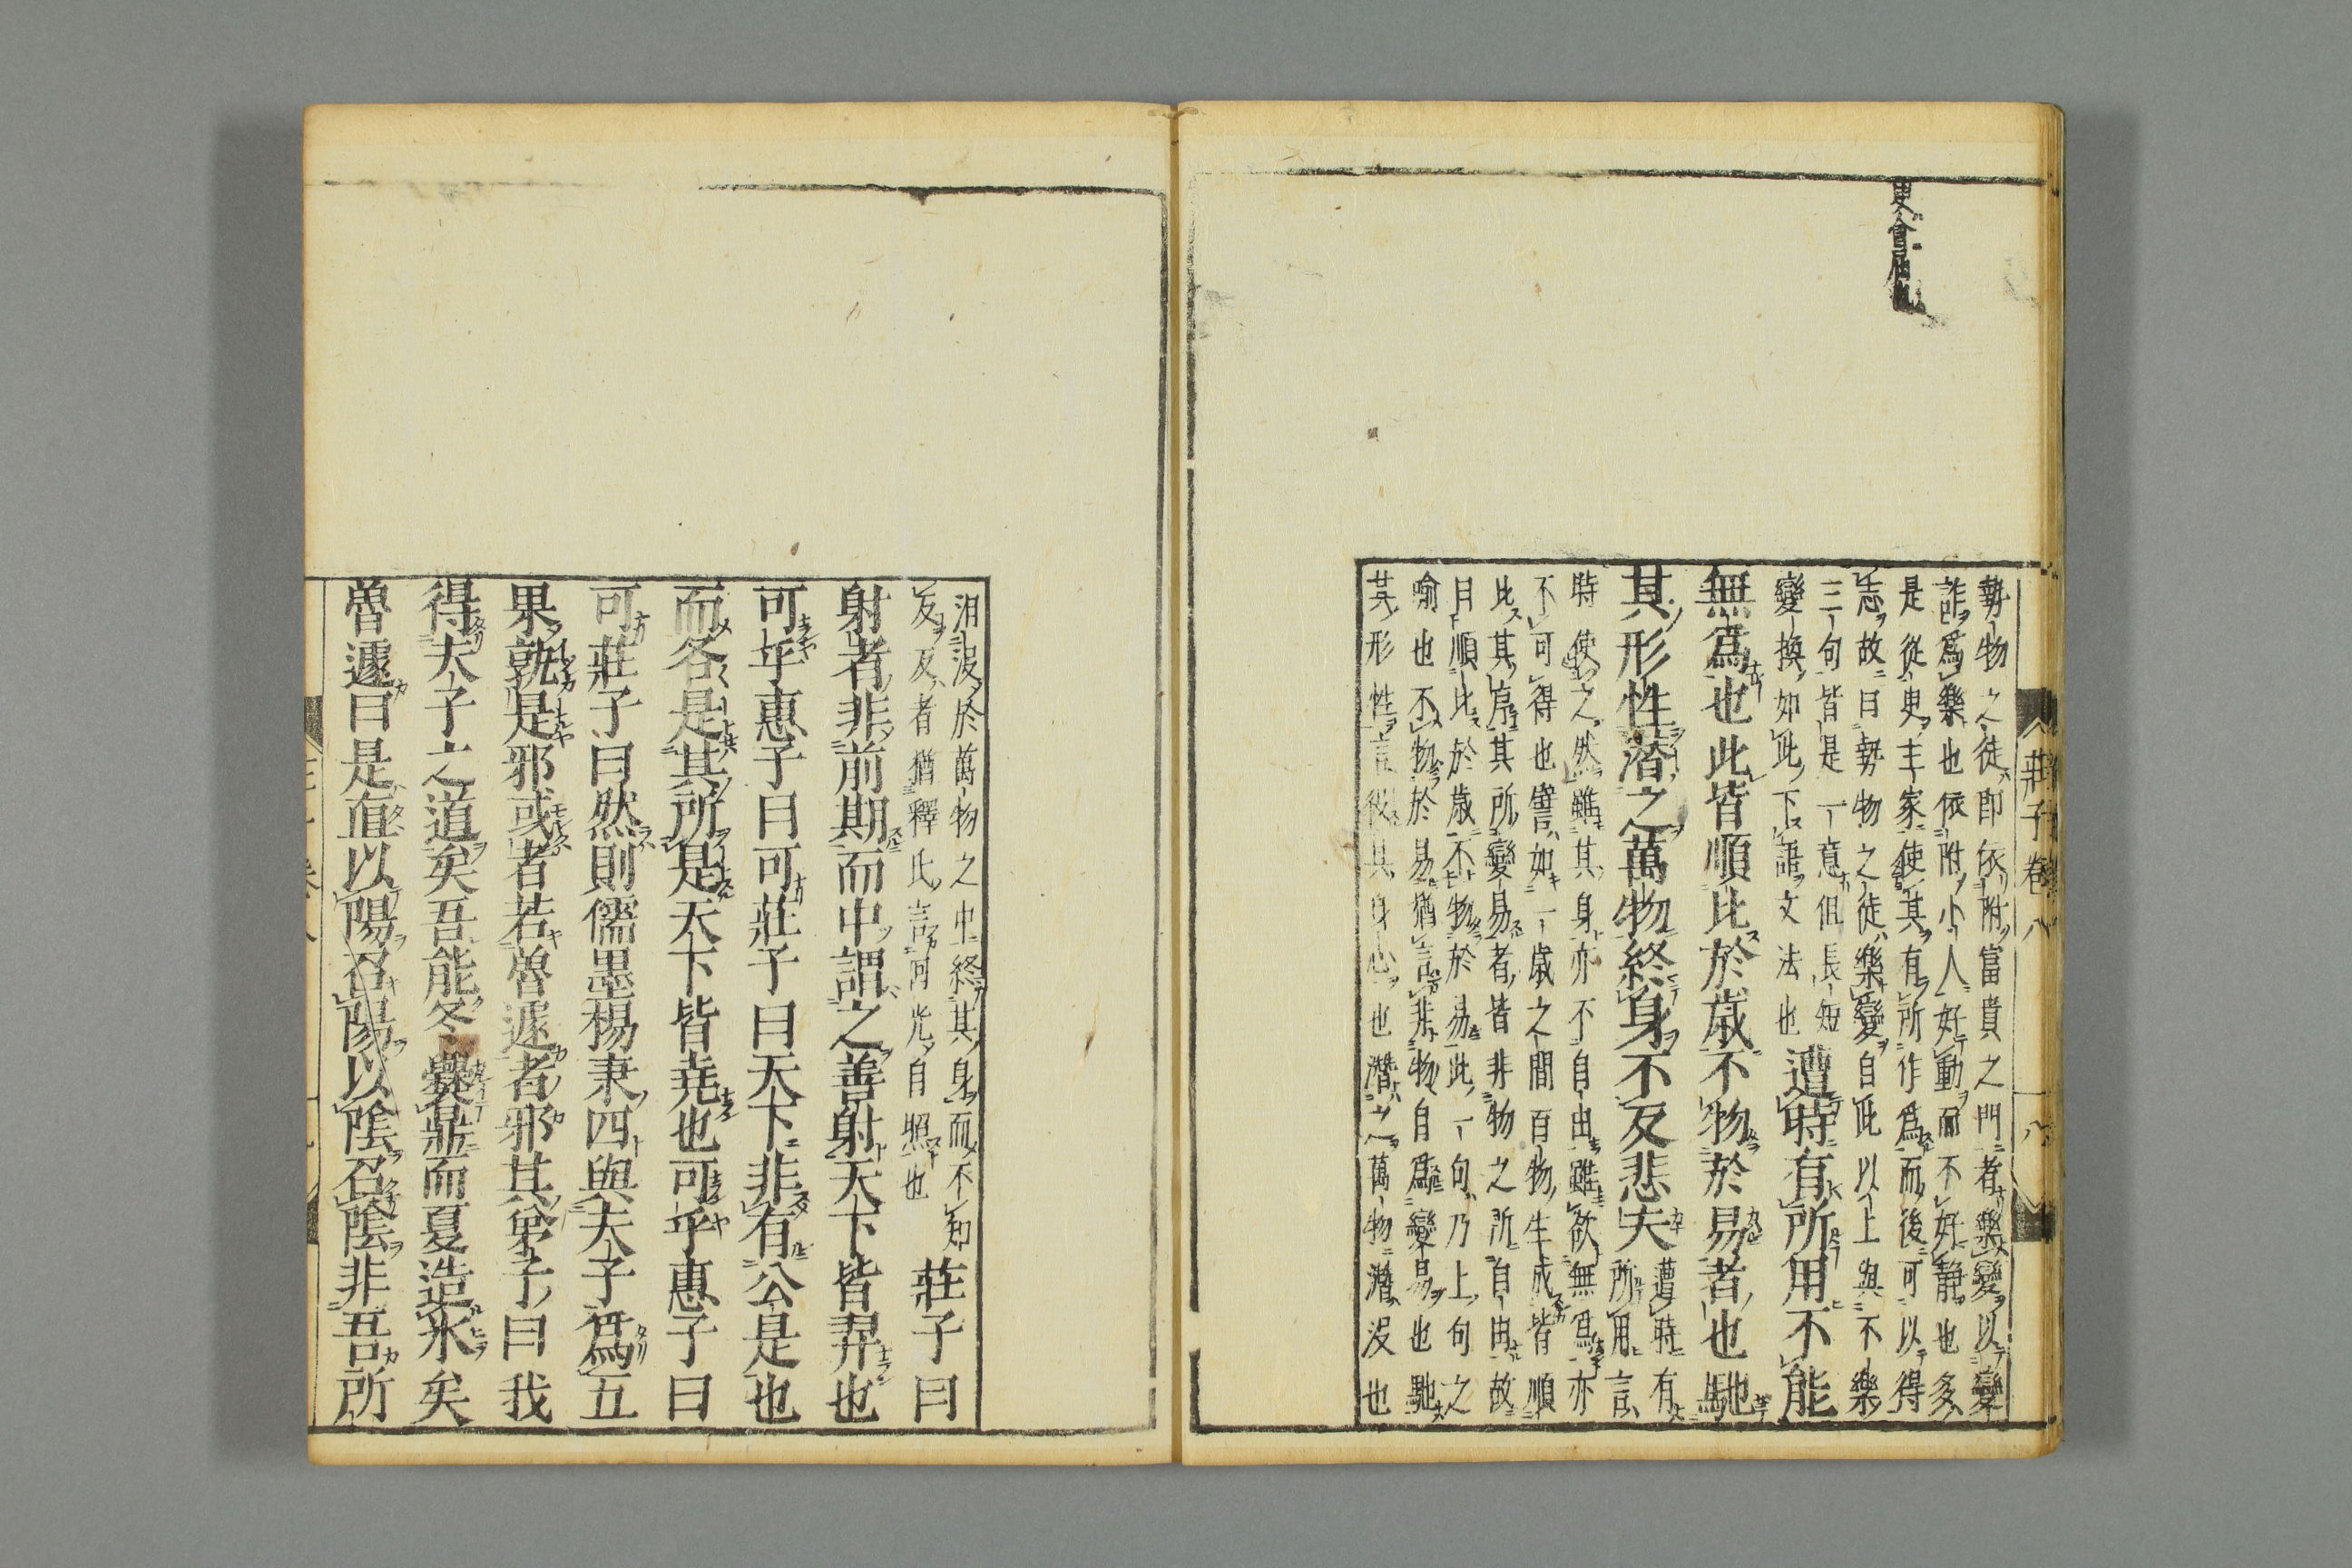 勢物之徒即依附富貴之門者樂變以變
詐爲樂也依附小人好動而不好靜也多
是從史主家使其有所作爲而後可以得
志故曰勢物之徒樂變自此以上與不樂
三句皆是一意但長短
變換如此下語文法也遭時有所用不能
無爲也此皆順比於歲不物於易者也馳
其形性潛之萬物終身不反悲夫
遭時有
所用言
時使之然雖其身亦不自由雖欲無爲亦
不可得也譬如一歲之間百物生成皆順
比其序其所變易者皆非物之所自由故
曰順比於歲不物於易此一句乃上句之
喻也不物於易猶言非物自爲變易也馳
其形性言役其身心也潛之萬物潛沒也
莊子卷八
八
汨沒於萬物之中終其身而不知
反反者猶釋氏言回光自照也
莊子曰
射者非前期而中謂之善射天下皆羿也
可乎惠子曰可莊子曰天下非有公是也
而各是其所是天下皆堯也可乎惠子曰
可莊子曰然則儒墨楊秉四與夫子爲五
果孰是邪或者若魯遽者邪其弟子曰我
得夫子之道矣吾能冬爨鼎而夏造氷矣
魯遽曰是直以陽召陽以陰召陰非吾所